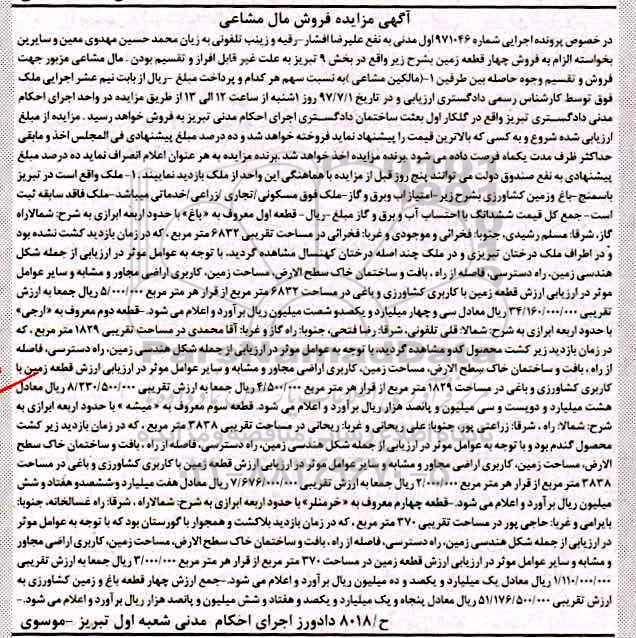 آگهی مزایده فروش مال مشاعی
در خصوص پرونده اجرایی شماره ۹۷۱۰۴۶ اول مدنی به نفع علیرضا افشار-رقیه و زینب تلفونی به زیان محمد حسین مهدوی معین و سایرین
بخواسته الزام به فروش چهار قطعه زمین بشرح زیر واقع در بخش ۹ تبریز به علت غیر قابل افراز و تقسیم بودن - مال مشاعی مزبور جهت
فروش و تقسیم وجوه حاصله بین طرفین ۱-(مالکین مشاعی )به نسبت سهم هر کدام و پرداخت مبلغ -ریال از بابت نیم عشر اجرایی ملک
فوق توسط کارشناس رسمی دادگستری ارزیابی و در تاریخ ۹۷/۷/۱ روز ۱شنبه از ساعت ۱۲ الی ۱۳ از طریق مزایده در واحد اجرای احکام
مدنی دادگستری تبریز واقع در گلکار اول بعثت ساختمان دادگستری اجرای احکام مدنی تبریز به فروش خواهد رسید . مزایده از مبلغ
ارزیابی شده شروع و به کسی که بالاترین قیمت را پیشنهاد نماید فروخته خواهد شد و ده درصد مبلغ پیشنهادی فی المجلس اخذ و مابقی
حداکثر ظرف مدت یکماه فرصت داده می شود .برنده مزایده اخذ خواهد شد .برنده مزایده به هر عنوان اعلام انصراف نماید ده درصد مبلغ
پیشنهادی به نفع صندوق دولت می توانند پنج روز قبل از مزایده با هماهنگی این واحد از ملک بازدید نمایند . ۱- ملک واقع است در تبریز
باسمنج-باغ وزمین کشاورزی بشرح زیر-امتیاز آب وبرق و گاز-ملک فوق مسکونی/تجاری /زراعی/خدماتی میباشد-ملک فاقد سابقه ثبت
است - جمع کل قیمت ششدانگ با احتساب آب و برق و گاز مبلغ -ریال- قطعه اول معروف به «باغ» با حدود اربعه ابرازی به شرح: شمالاراه
گاز، شرقا: مسلم رشیدی، جنوبا: فخرائی و موجودی و غربا: فخرائی در مساحت تقریبی ۶۸۳۲ متر مربع ، که در زمان بازدید کشت نشده بود
و در اطراف ملک درختان تبریزی و در ملک چند اصله درختان کهنسال مشاهده گردید، با توجه به عوامل موثر در ارزیابی از جمله شکل
هندسی زمین، راه دسترسی، فاصله از راه ، بافت و ساختمان خاک سطح الارض، مساحت زمین، کاربری اراضی مجاور و مشابه و سایر عوامل
موثر در ارزیابی ارزش قطعه زمین با کاربری کشاورزی و باغی در مساحت ۶۸۳۲ متر مربع از قرار هر متر مربع ۵/۰۰۰/۰۰۰ ریال جمعا به ارزش
تقریبی ۳۴/۱۶۰/۰۰۰/۰۰۰ ریال معادل سی و چهار میلیارد و یکصدو شصت میلیون ریال برآورد و اعلام می شود. -قطعه دوم معروف به «ارجی»
با حدود اربعه ابرازی به شرح: شمالا: قلی تلفونی، شرقا: رضا فتحی، جنوبا: راه گاز و غربا: آقا محمدی در مساحت تقریبی ۱۸۲۹ متر مربع ، که
در زمان بازدید زیر کشت محصول کدو مشاهده گردید، با توجه به عوامل موثر در ارزیابی از جمله شکل هندسی زمین، راه دسترسی، فاصله
از راه ، بافت و ساختمان خاک سطح الارض، مساحت زمین، کاربری اراضی مجاور و مشابه و سایر عوامل موثر در ارزیابی ارزش قطعه زمین با
کاربری کشاورزی و باغی در مساحت ۱۸۲۹ متر مربع از قرار هر متر مربع ۴/۵۰۰/۰۰۰ ریال جمعا به ارزش تقریبی ۸/۲۳۰/۵۰۰/۰۰۰ ریال معادل
هشت میلیارد و دویست و سی میلیون و پانصد هزار ریال برآورد و اعلام می شود. قطعه سوم معروف به « میشه » با حدود اربعه ابرازی به
شرح: شمالا: راه ، شرقا: زراعتی پور، جنوبا: علی ریحانی و غربا: ریحانی در مساحت تقریبی ۳۸۳۸ متر مربع ، که در زمان بازدید زیر کشت
محصول گندم بود و با توجه به عوامل موثر در ارزیابی از جمله شکل هندسی زمین، راه دسترسی، فاصله از راه ، بافت و ساختمان خاک سطح
الارض، مساحت زمین، کاربری اراضی مجاور و مشابه و سایر عوامل موثر در ارزیابی ارزش قطعه زمین با کاربری کشاورزی و باغی در مساحت
۳۸۳۸ متر مربع از قرار هر متر مربع ۲/۰۰۰/۰۰۰ ریال جمعا به ارزش تقریبی ۷/۶۷۶/۰۰۰/۰۰۰ ریال معادل هفت میلیارد و ششصدو هفتاد و شش
میلیون ریال برآورد و اعلام می شود. -قطعه چهارم معروف به «خرمنلر» با حدود اربعه ابرازی به شرح: شمالاراه ، شرقا: راه غسالخانه، جنوبا:
بایرامی و غربا: حاجی پور در مساحت تقریبی ۳۷۰ متر مربع ، که در زمان بازدید بلاکشت و همجوار با گورستان بود که با توجه به عوامل موثر
در ارزیابی از جمله شکل هندسی زمین، راه دسترسی، فاصله از راه ، بافت و ساختمان خاک سطح الارض، مساحت زمین، کاربری اراضی مجاور
و مشابه و سایر عوامل موثر در ارزیابی ارزش قطعه زمین در مساحت ۳۷۰ متر مربع از قرار هر متر مربع ۳/۰۰۰/۰۰۰ ریال جمعا به ارزش تقریبی
۱/۱۱۰/۰۰۰/۰۰۰ ریال معادل یک میلیارد و یکصد و ده میلیون ریال برآورد و اعلام می شود. -جمع ارزش چهار قطعه باغ و زمین کشاورزی به
ارزش تقریبی ۵۱/۱۷۶/۵۰۰/۰۰۰ ریال معادل پنجاه و یک میلیارد و یکصد و هفتاد و شش میلیون و پانصد هزار ریال برآورد و اعلام می شود.-
ح/۸۰۱۸ دادورز اجرای احکام مدنی شعبه اول تبریز -موسوی